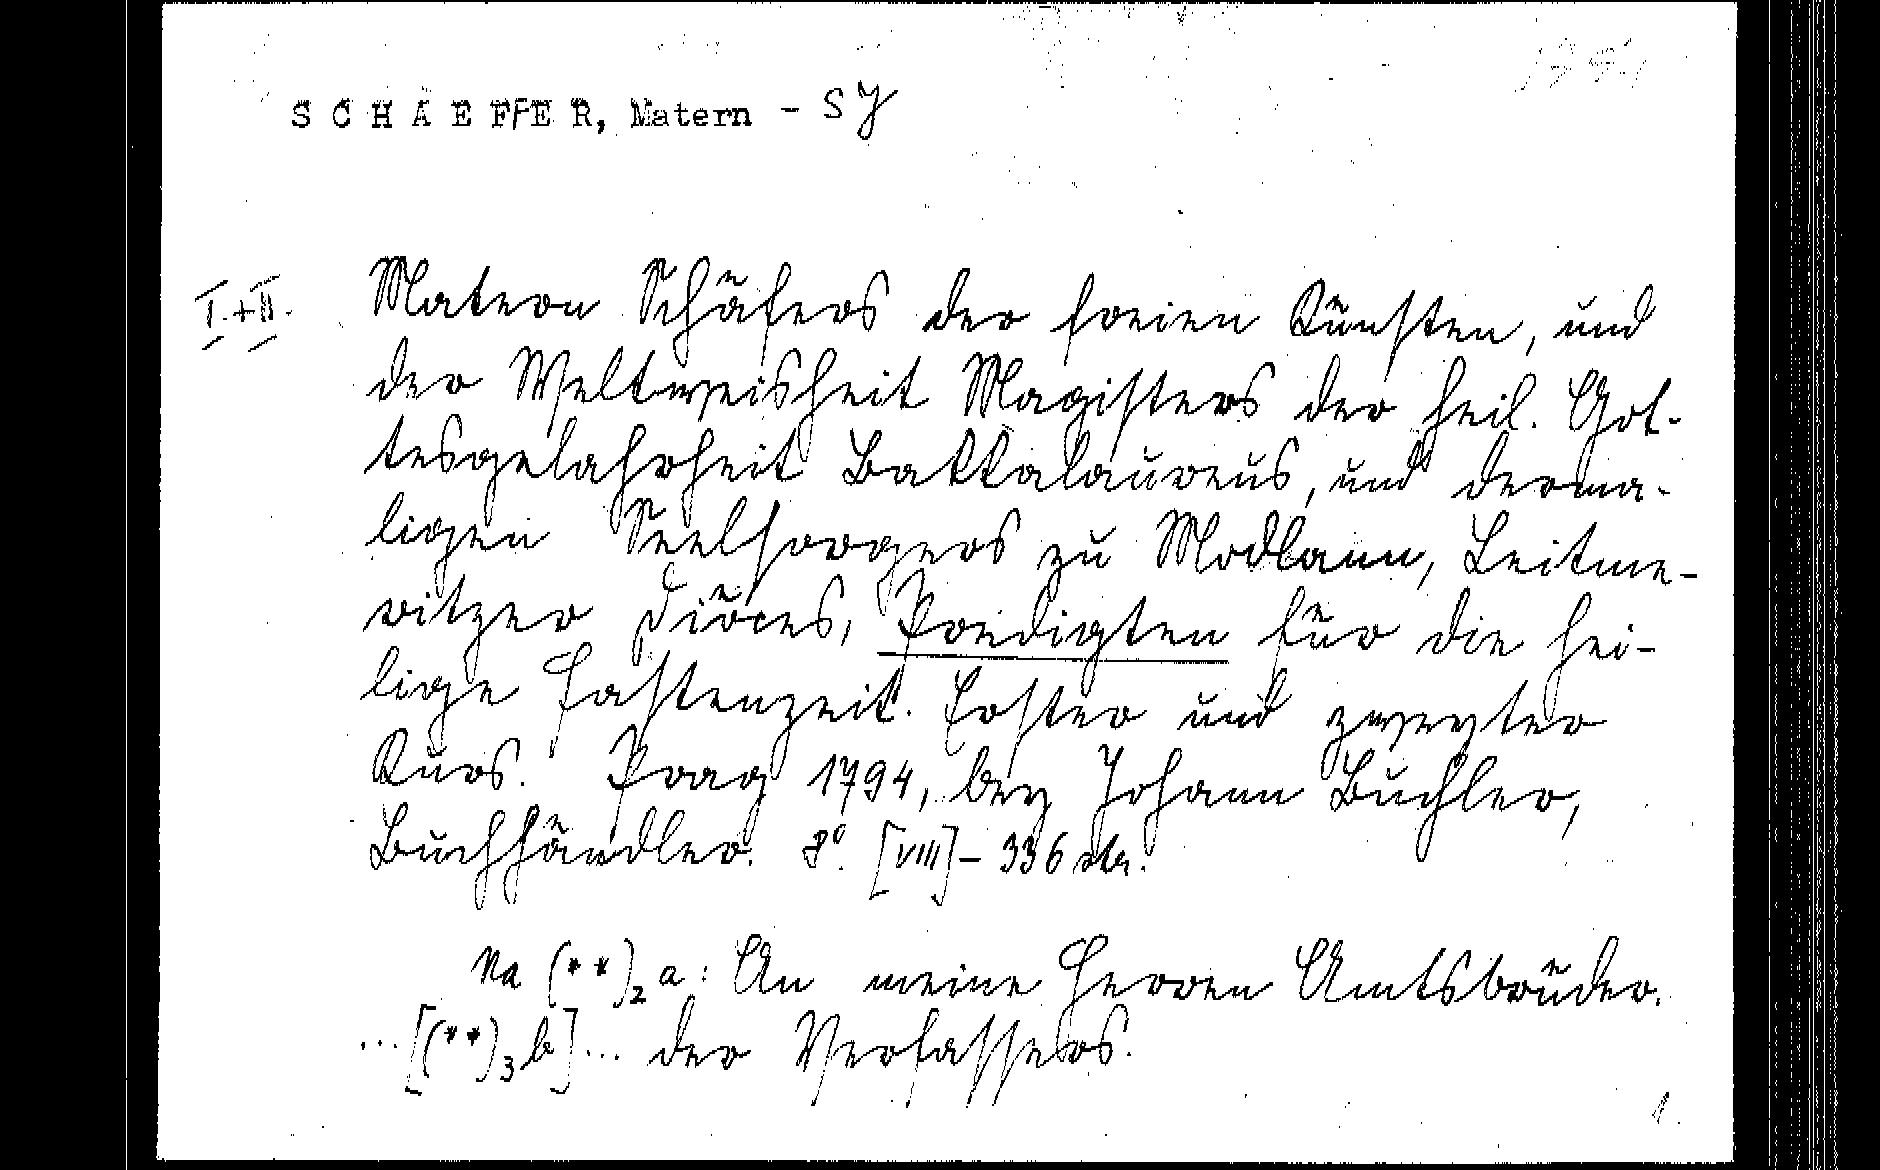 SCHAEFFER, Matern - SJ
I.+II. Matern Schäfers der freien Künsten, und
der Weltweisheit Magisters der heil. Got-
tesgelahrheit Bakkalaureus, und derma-
ligen Seelsorgers zu Modlann, Leitme-
ritzer Diöces, Predigten für die hei-
lige Fastenzeit. Erster und zweyter
Kurs. Prag 1794, bey Johann Buchler,
Buchhändler. 8°. [VIII] - 336 str.
Na (**)2 a: An meine Herren Amtsbrüder.
...[(**)3 b]... der Verfassers.
1.